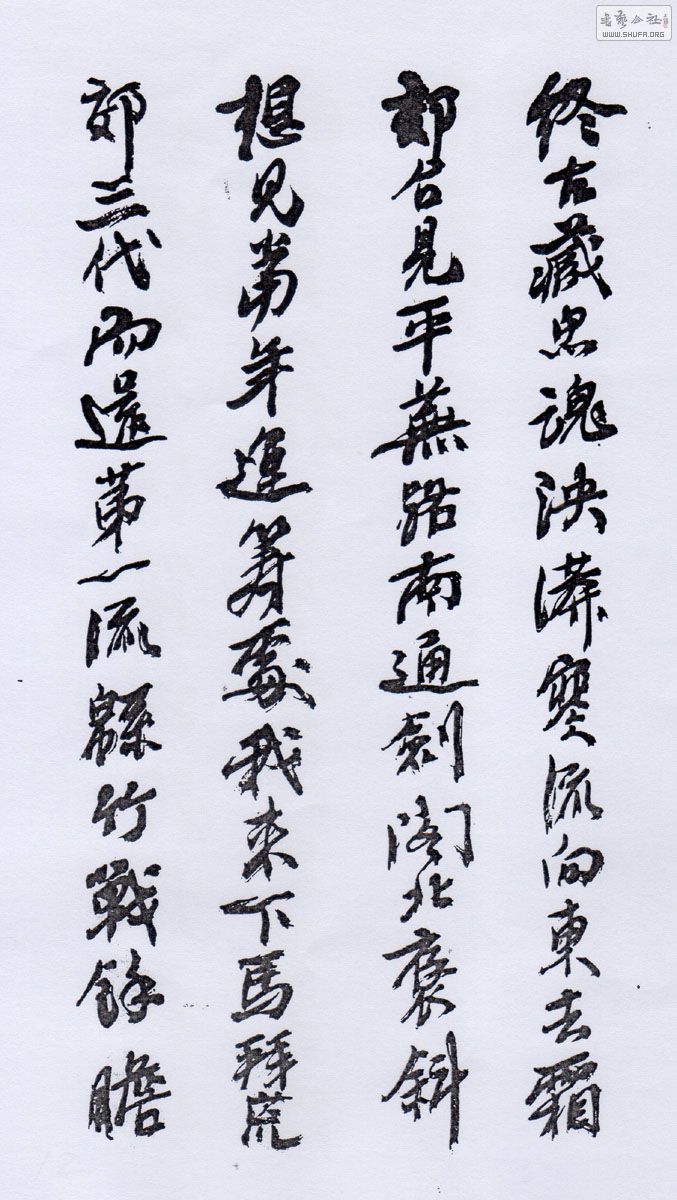 終古藏忠魂泱漭寒流向東去霜
郊見平蕪路南通劍閣北褒斜
想見當年運籌處我來下馬拜荒
郊三代而還第一流緜竹戰餘瞻
書藝公社
WWW.SHUFA.ORG